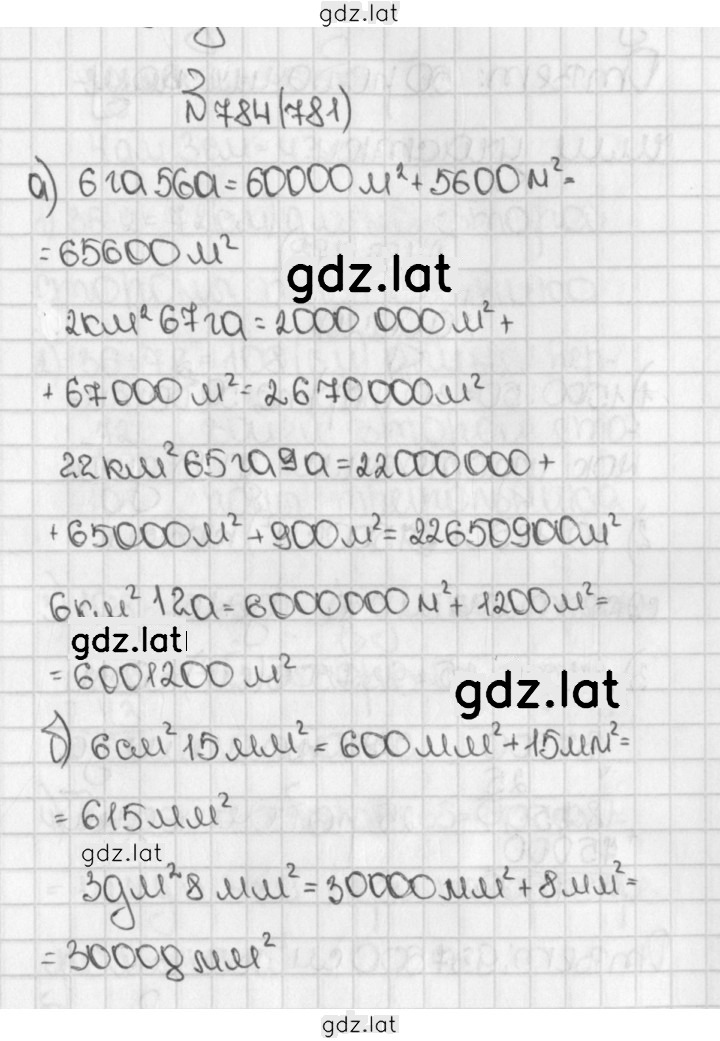 gdz.lat
№784(781)
а) 6га 56а = 60000м² + 5600м² =
= 65600м²
gdz.lat
2км² 67га = 2000 000м² +
+ 67000м² = 2670000м²
22км² 65га 9а = 22000000 +
+ 65000м² + 900м² = 22650900м²
6км² 12а = 6000000м² + 1200м² =
gdz.lat
= 6001200м²
gdz.lat
б) 6см² 15мм² = 600мм² + 15мм² =
= 615мм²
gdz.lat
3дм² 8мм² = 30000мм² + 8мм² =
= 30008мм²
gdz.lat